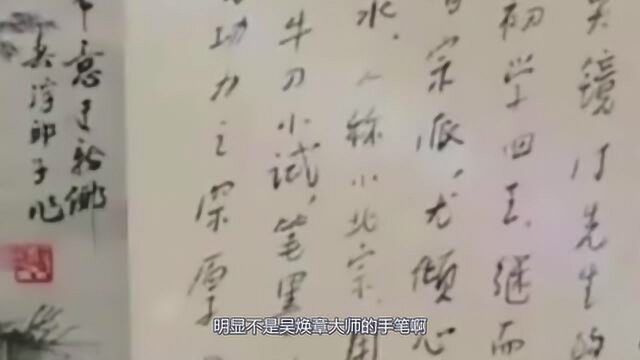 吴镜汀先生的
初学四王,继而
宗派,尤倾心
水,人称小北宗
牛刀小试,笔墨
功力之深厚
明显不是吴焕章大师的手笔啊